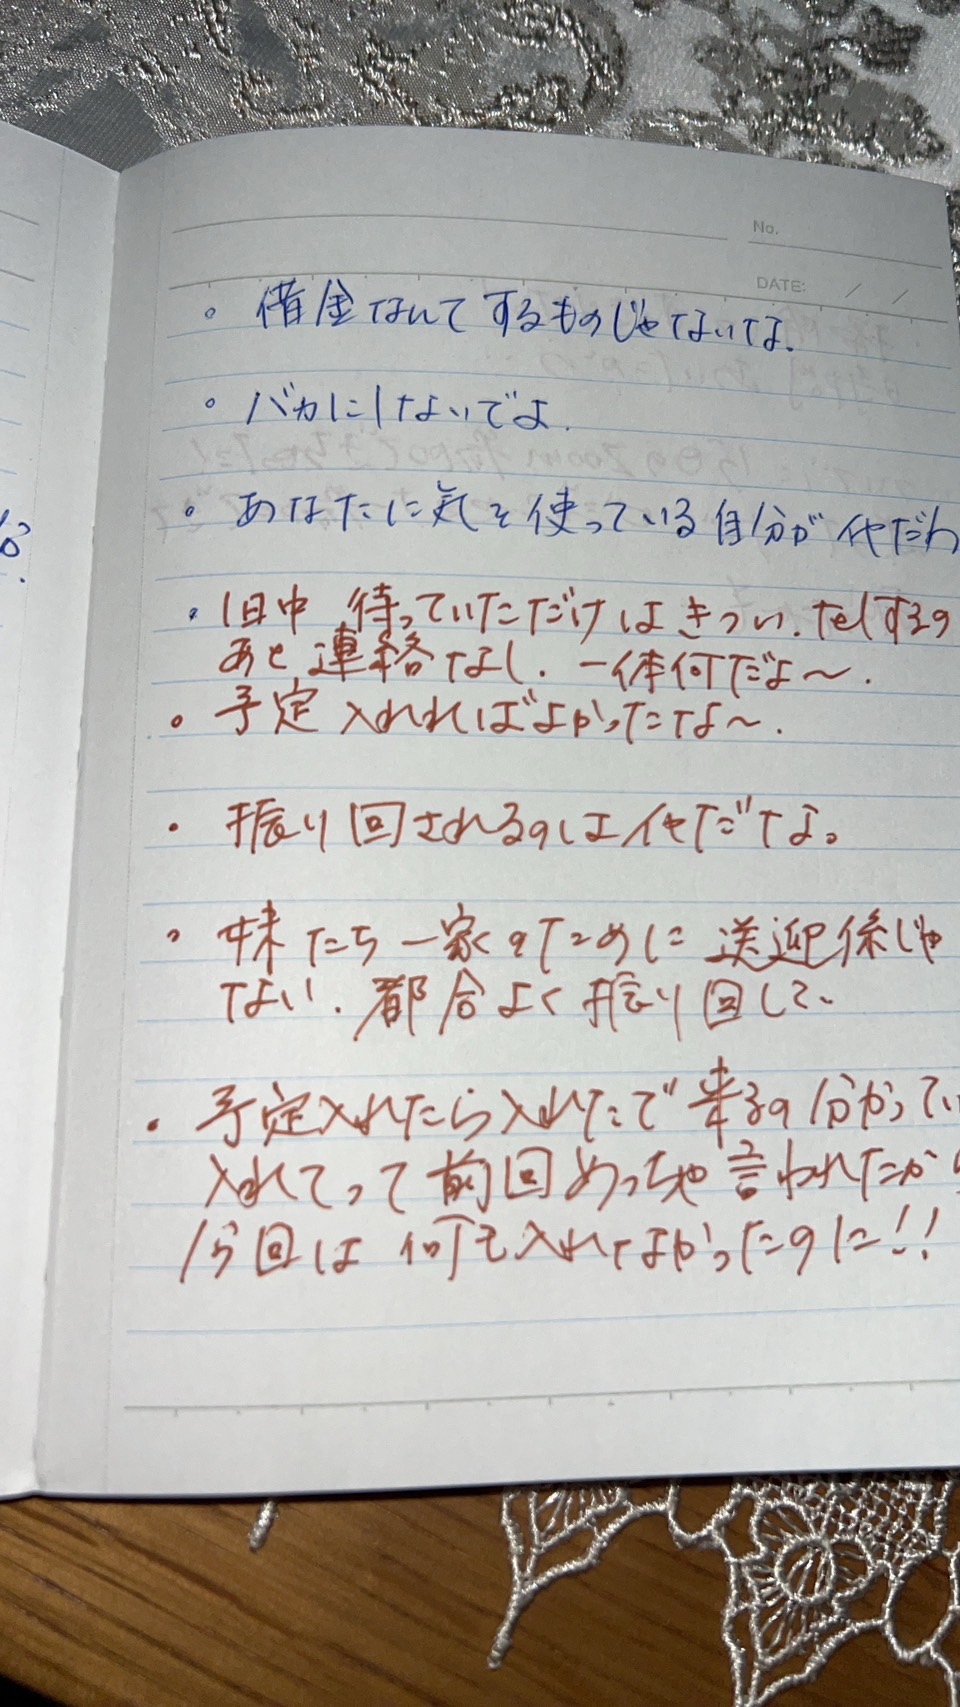 No.
DATE: / /
。借金なんてするものじゃないな.
。バカにしないでよ.
。あなたに気を使っている自分がイヤだわ
・1日中 待っていただけはきつい. telするの
あと連絡なし. 一体何だよ〜.
。予定入れればよかったな〜.
・振り回されるのはイヤだな。
・妹たち一家のために送迎係じゃ
ない. 都合よく振り回して、
・予定入れたら入れたで来るの分かってい
入れてって前回めっちゃ言われたから
今回は何も入れなかったのに!!